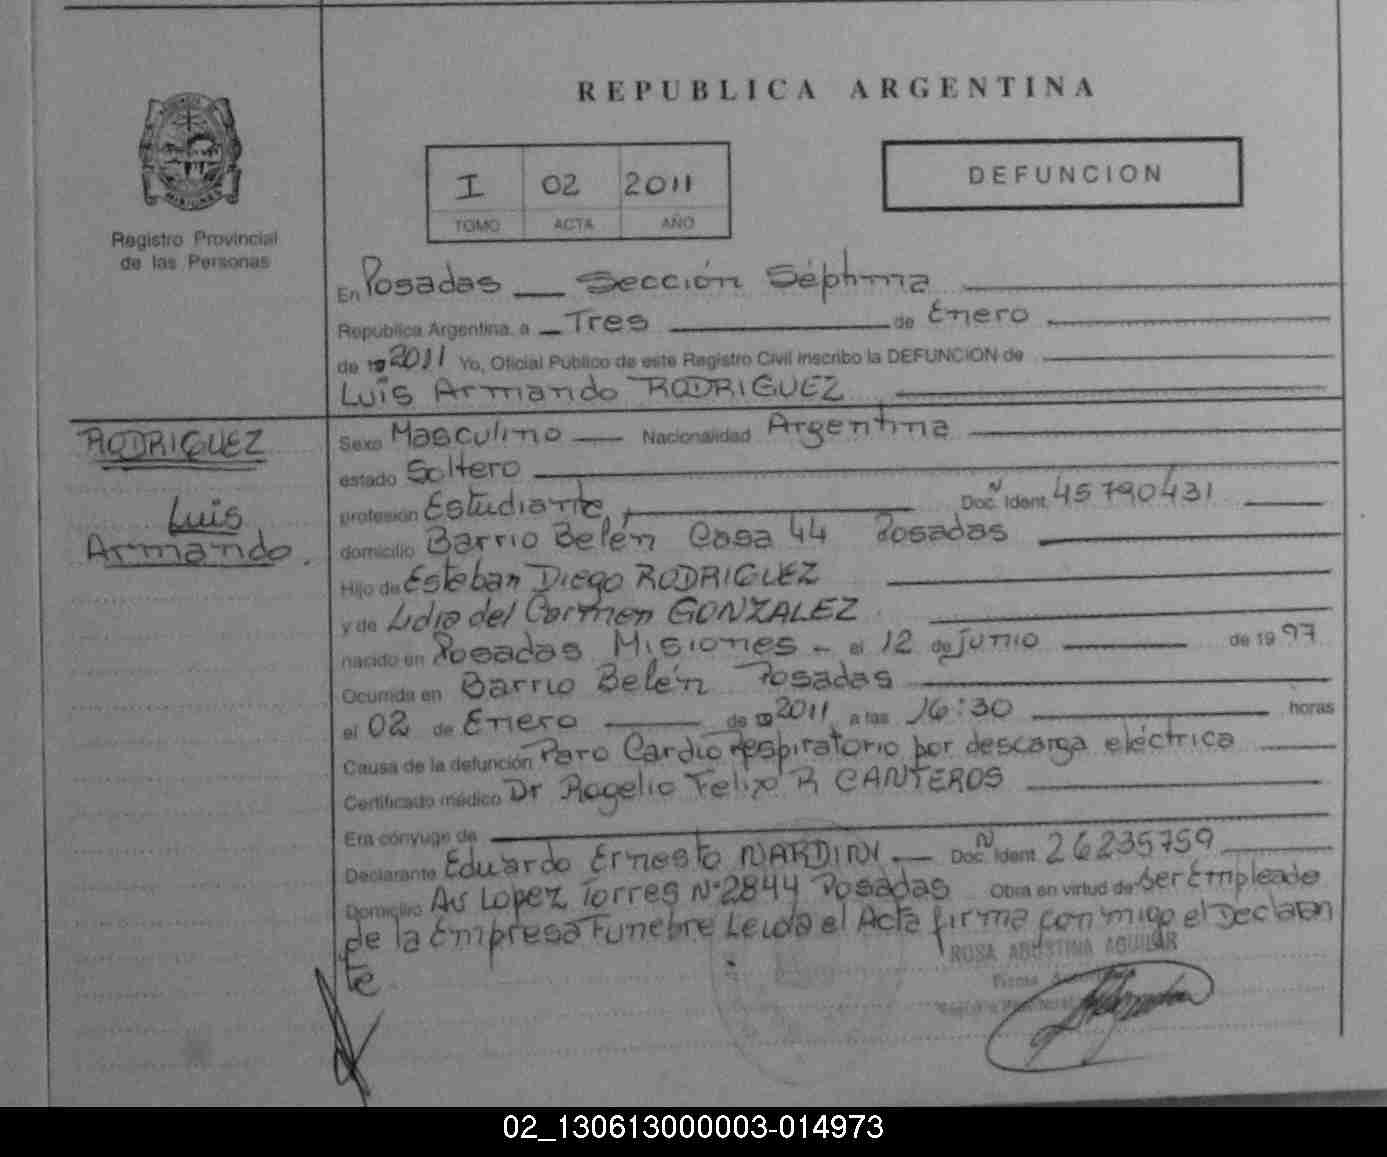 REPUBLICA ARGENTINA
I 02 2011
TOMO ACTA AÑO
DEFUNCION
MISIONES
Registro Provincial
de las Personas
En Posadas Sección Séptima
Republica Argentina, a Tres de Enero
de 19 2011 Yo, Oficial Público de este Registro Civil inscribo la DEFUNCION de
Luis Armando RODRIGUEZ
RODRIGUEZ
Luis
Armando.
Sexo Masculino Nacionalidad Argentina
estado Soltero
profesión Estudiante Doc. Ident. N 45790431
domicilio Barrio Belén Casa 44 Posadas
Hijo de Esteban Diego RODRIGUEZ
y de Lidia del Carmen GONZALEZ
nacido en Posadas Misiones - el 12 de junio de 1997
Ocurrida en Barrio Belén Posadas
el 02 de Enero de 19 2011 a las 16:30 horas
Causa de la defunción Paro Cardio respiratorio por descarga eléctrica
Certificado médico Dr Rogelio Felix R CANTEROS
Era cónyuge de
Declarante Eduardo Ernesto NARDINI Doc. Ident. N 26235759
Domicilio Av Lopez Torres N° 2844 Posadas Obra en virtud de Ser Empleado
de la Empresa Funebre Leida el Acta firma conmigo el Declaran
te
ROSA AGUSTINA AGUILAR
Firma
02_130613000003-014973